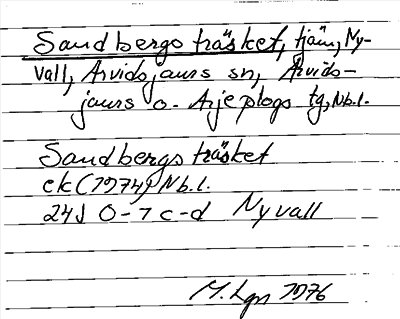 Sandbergsträsket, tjärn, Ny-
vall, Arvidsjaurs sn, Arvids-
jaurs o. Arjeplogs tg, Nb.l.
Sandbergsträsket
ek (1974) Nb.l.
24J 0-1 c-d Nyvall
M. Lgn 1976